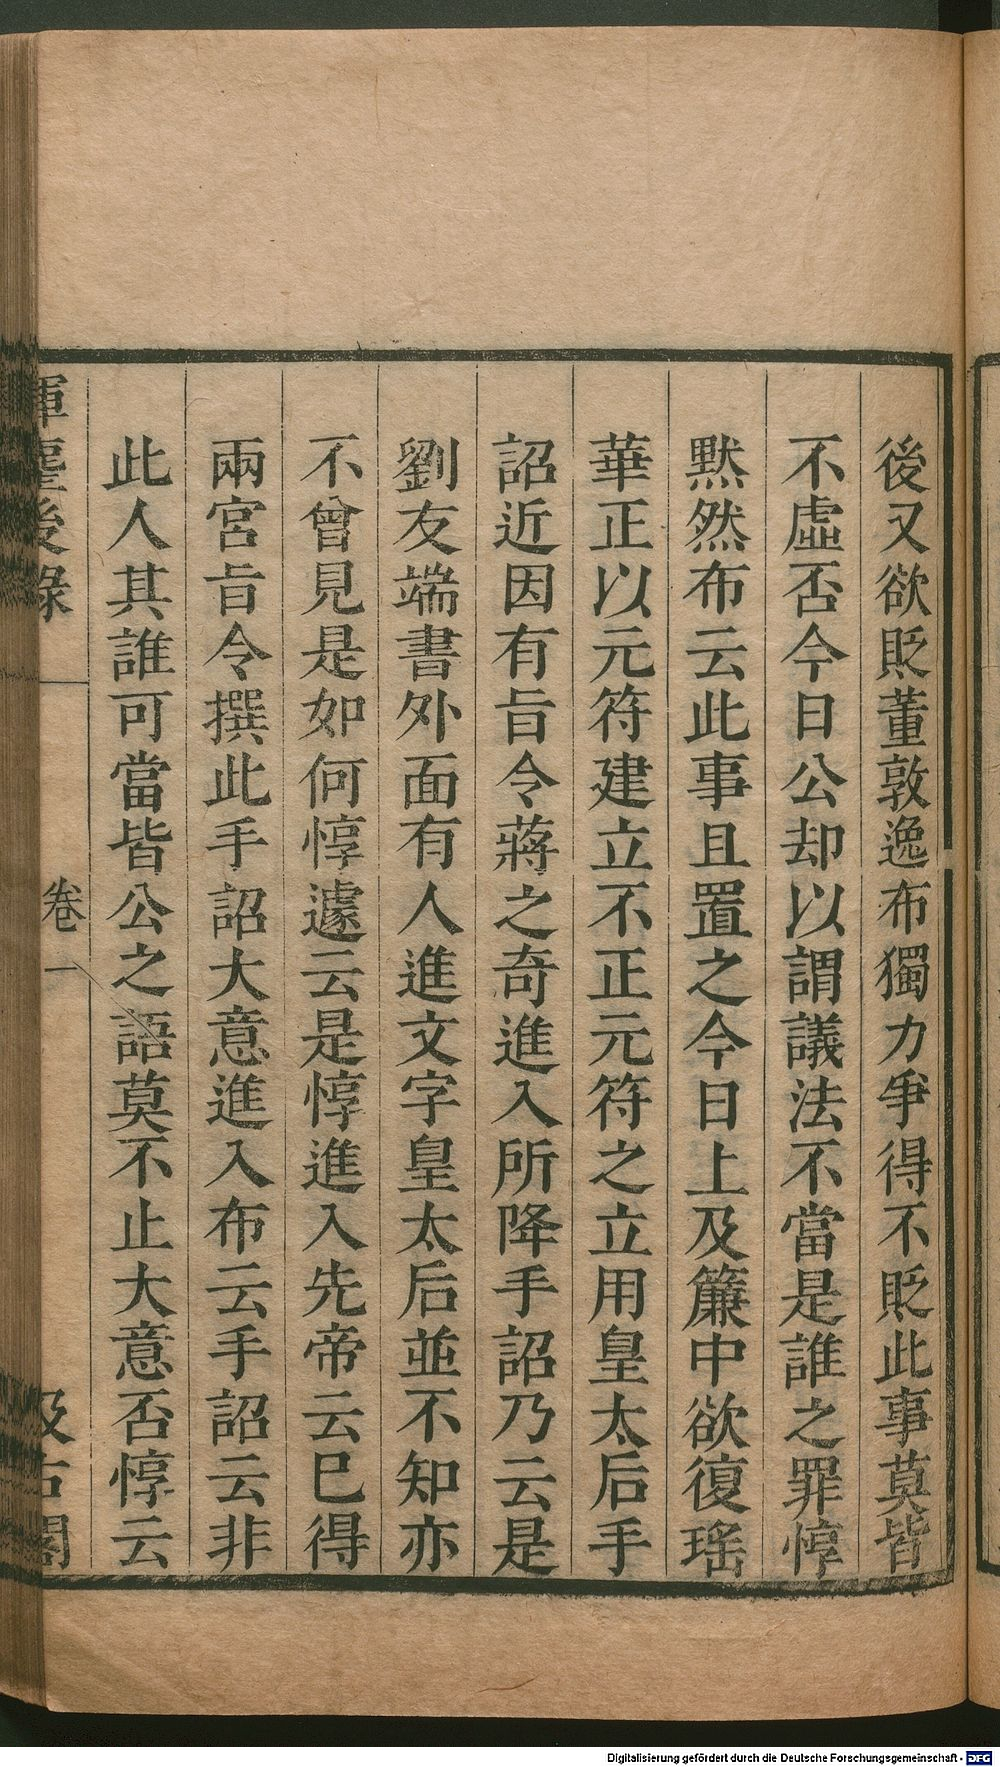 後又欲貶董敦逸布獨力爭得不貶此事莫皆
不虛否今日公却以謂議法不當是誰之罪惇
黙然布云此事且置之今日上及簾中欲復瑤
華正以元符建立不正元符之立用皇太后手
詔近因有旨令蔣之奇進入所降手詔乃云是
劉友端書外面有人進文字皇太后並不知亦
不曾見是如何惇遽云是惇進入先帝云巳得
兩宮旨令撰此手詔大意進入布云手詔云非
此人其誰可當皆公之語莫不止大意否惇云
揮麈後錄
卷一
汲古閣
Digitalisierung gefördert durch die Deutsche Forschungsgemeinschaft - DFG